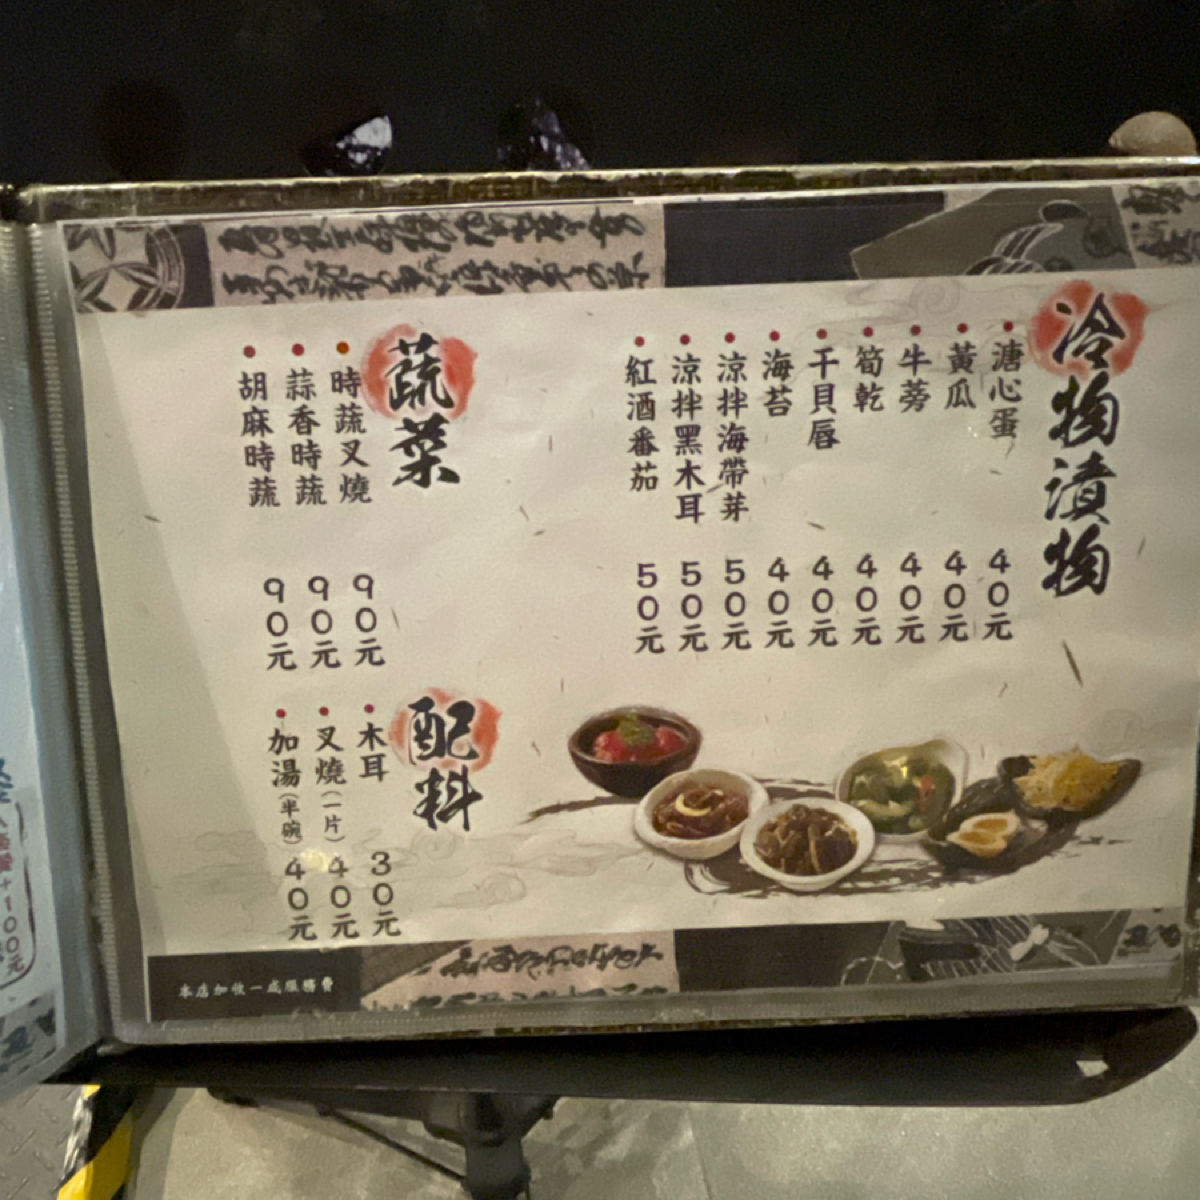 冷物漬物
溏心蛋 40元
黃瓜 40元
牛蒡 40元
筍乾 40元
干貝唇 40元
海苔 40元
涼拌海帶芽 50元
涼拌黑木耳 50元
紅酒番茄 50元
蔬菜
時蔬叉燒 90元
蒜香時蔬 90元
胡麻時蔬 90元
配料
木耳 30元
叉燒(一片) 40元
加湯(半碗) 40元
本店加收一成服務費
+100元